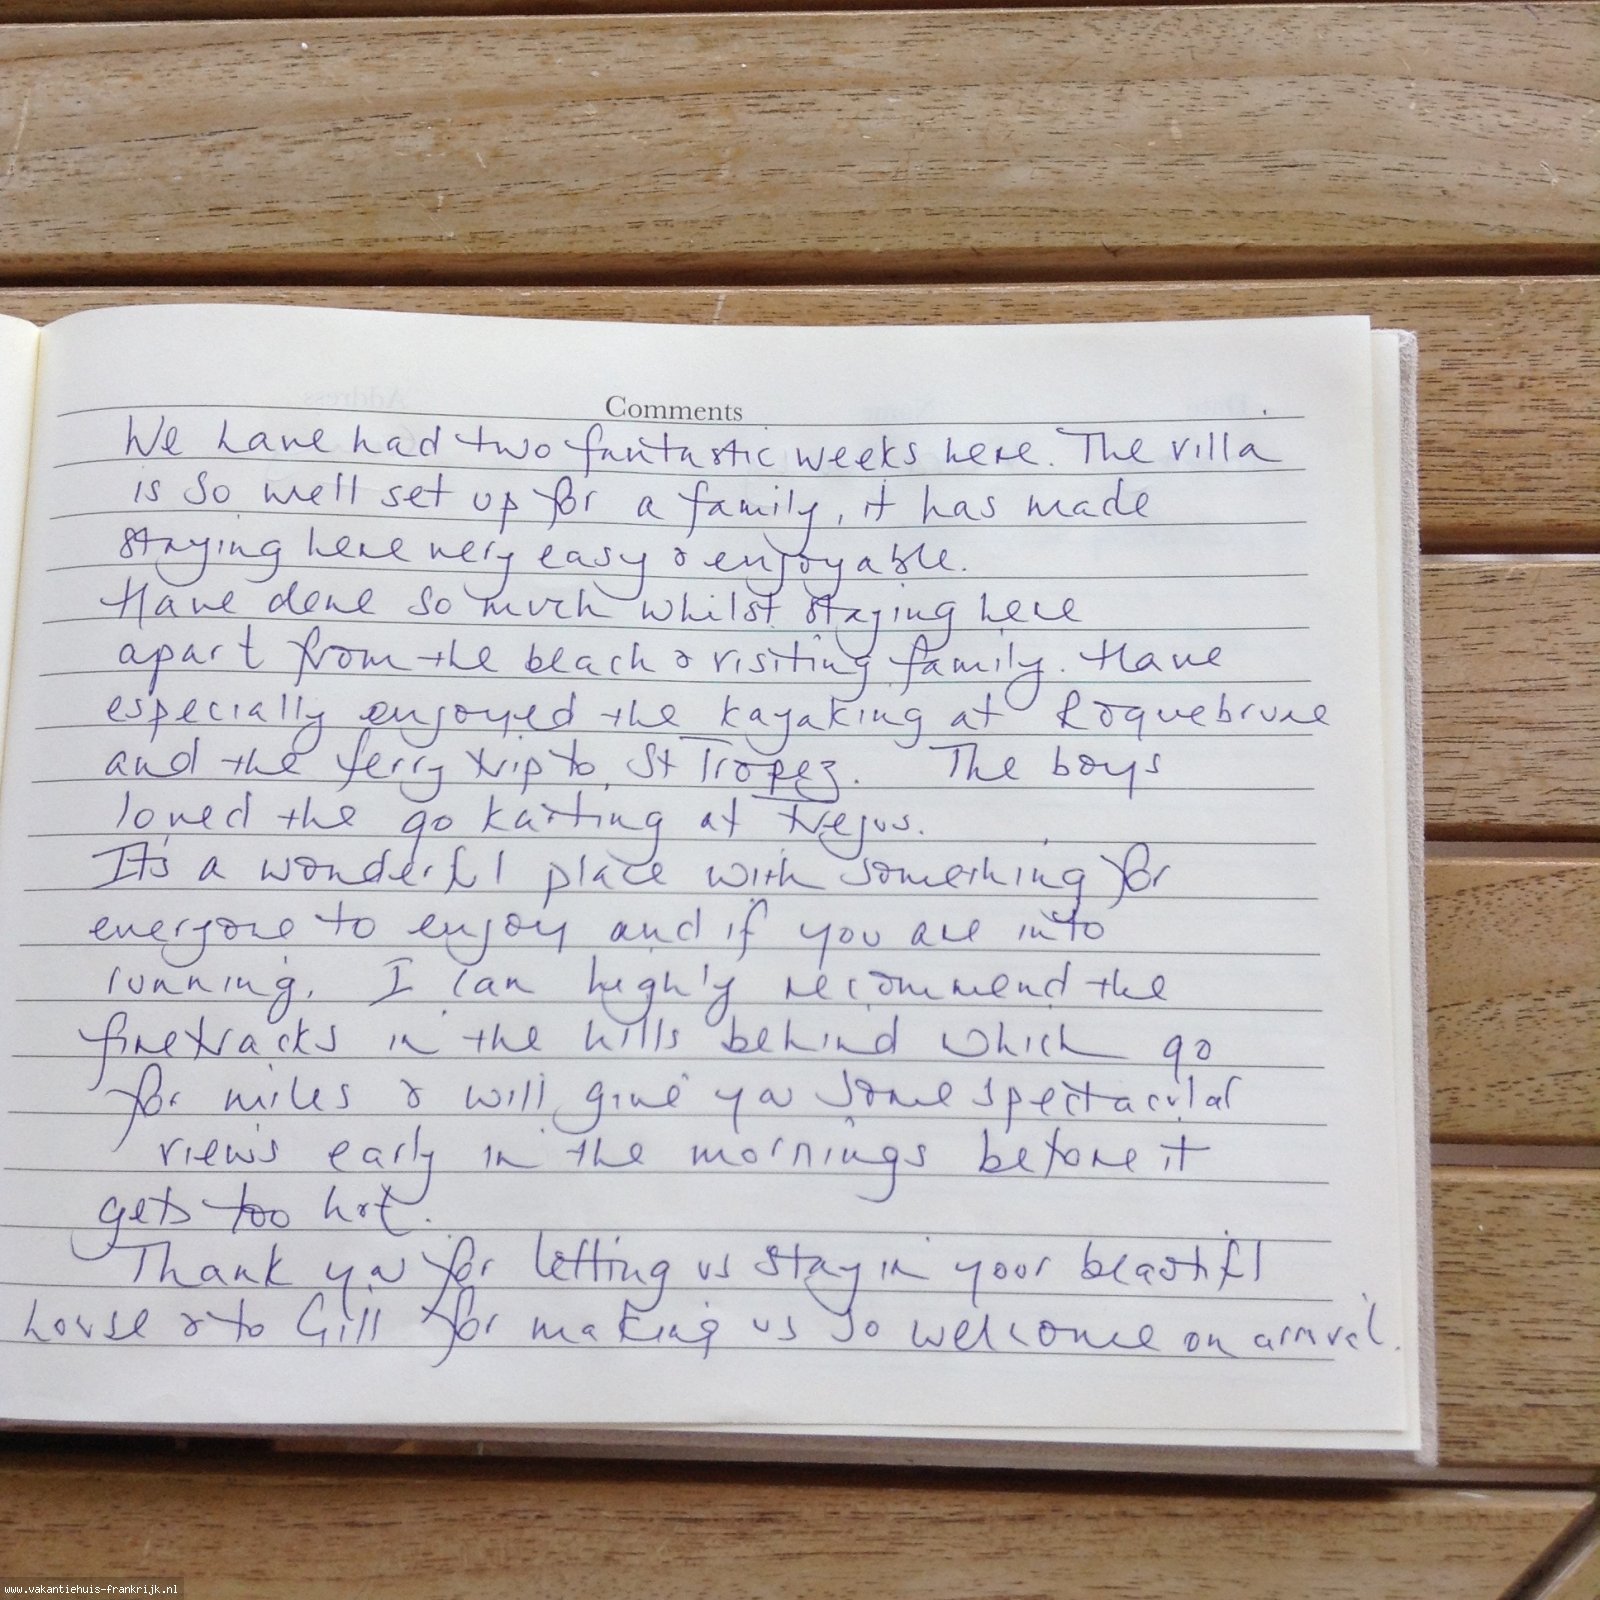 Comments
We have had two fantastic weeks here. The villa
is so well set up for a family, it has made
staying here very easy & enjoyable.
Have done so much whilst staying here
apart from the beach & visiting family. Have
especially enjoyed the kayaking at Roquebrune
and the ferry trip to St Tropez. The boys
loved the go karting at Frejus.
Its a wonderful place with something for
everyone to enjoy and if you are into
running, I can highly recommend the
firetracks in the hills behind which go
for miles & will give you some spectacular
views early in the mornings before it
gets too hot.
Thank you for letting us stay in your beautiful
house & to Gill for making us so welcome on arrival.
www.vakantiehuis-frankrijk.nl